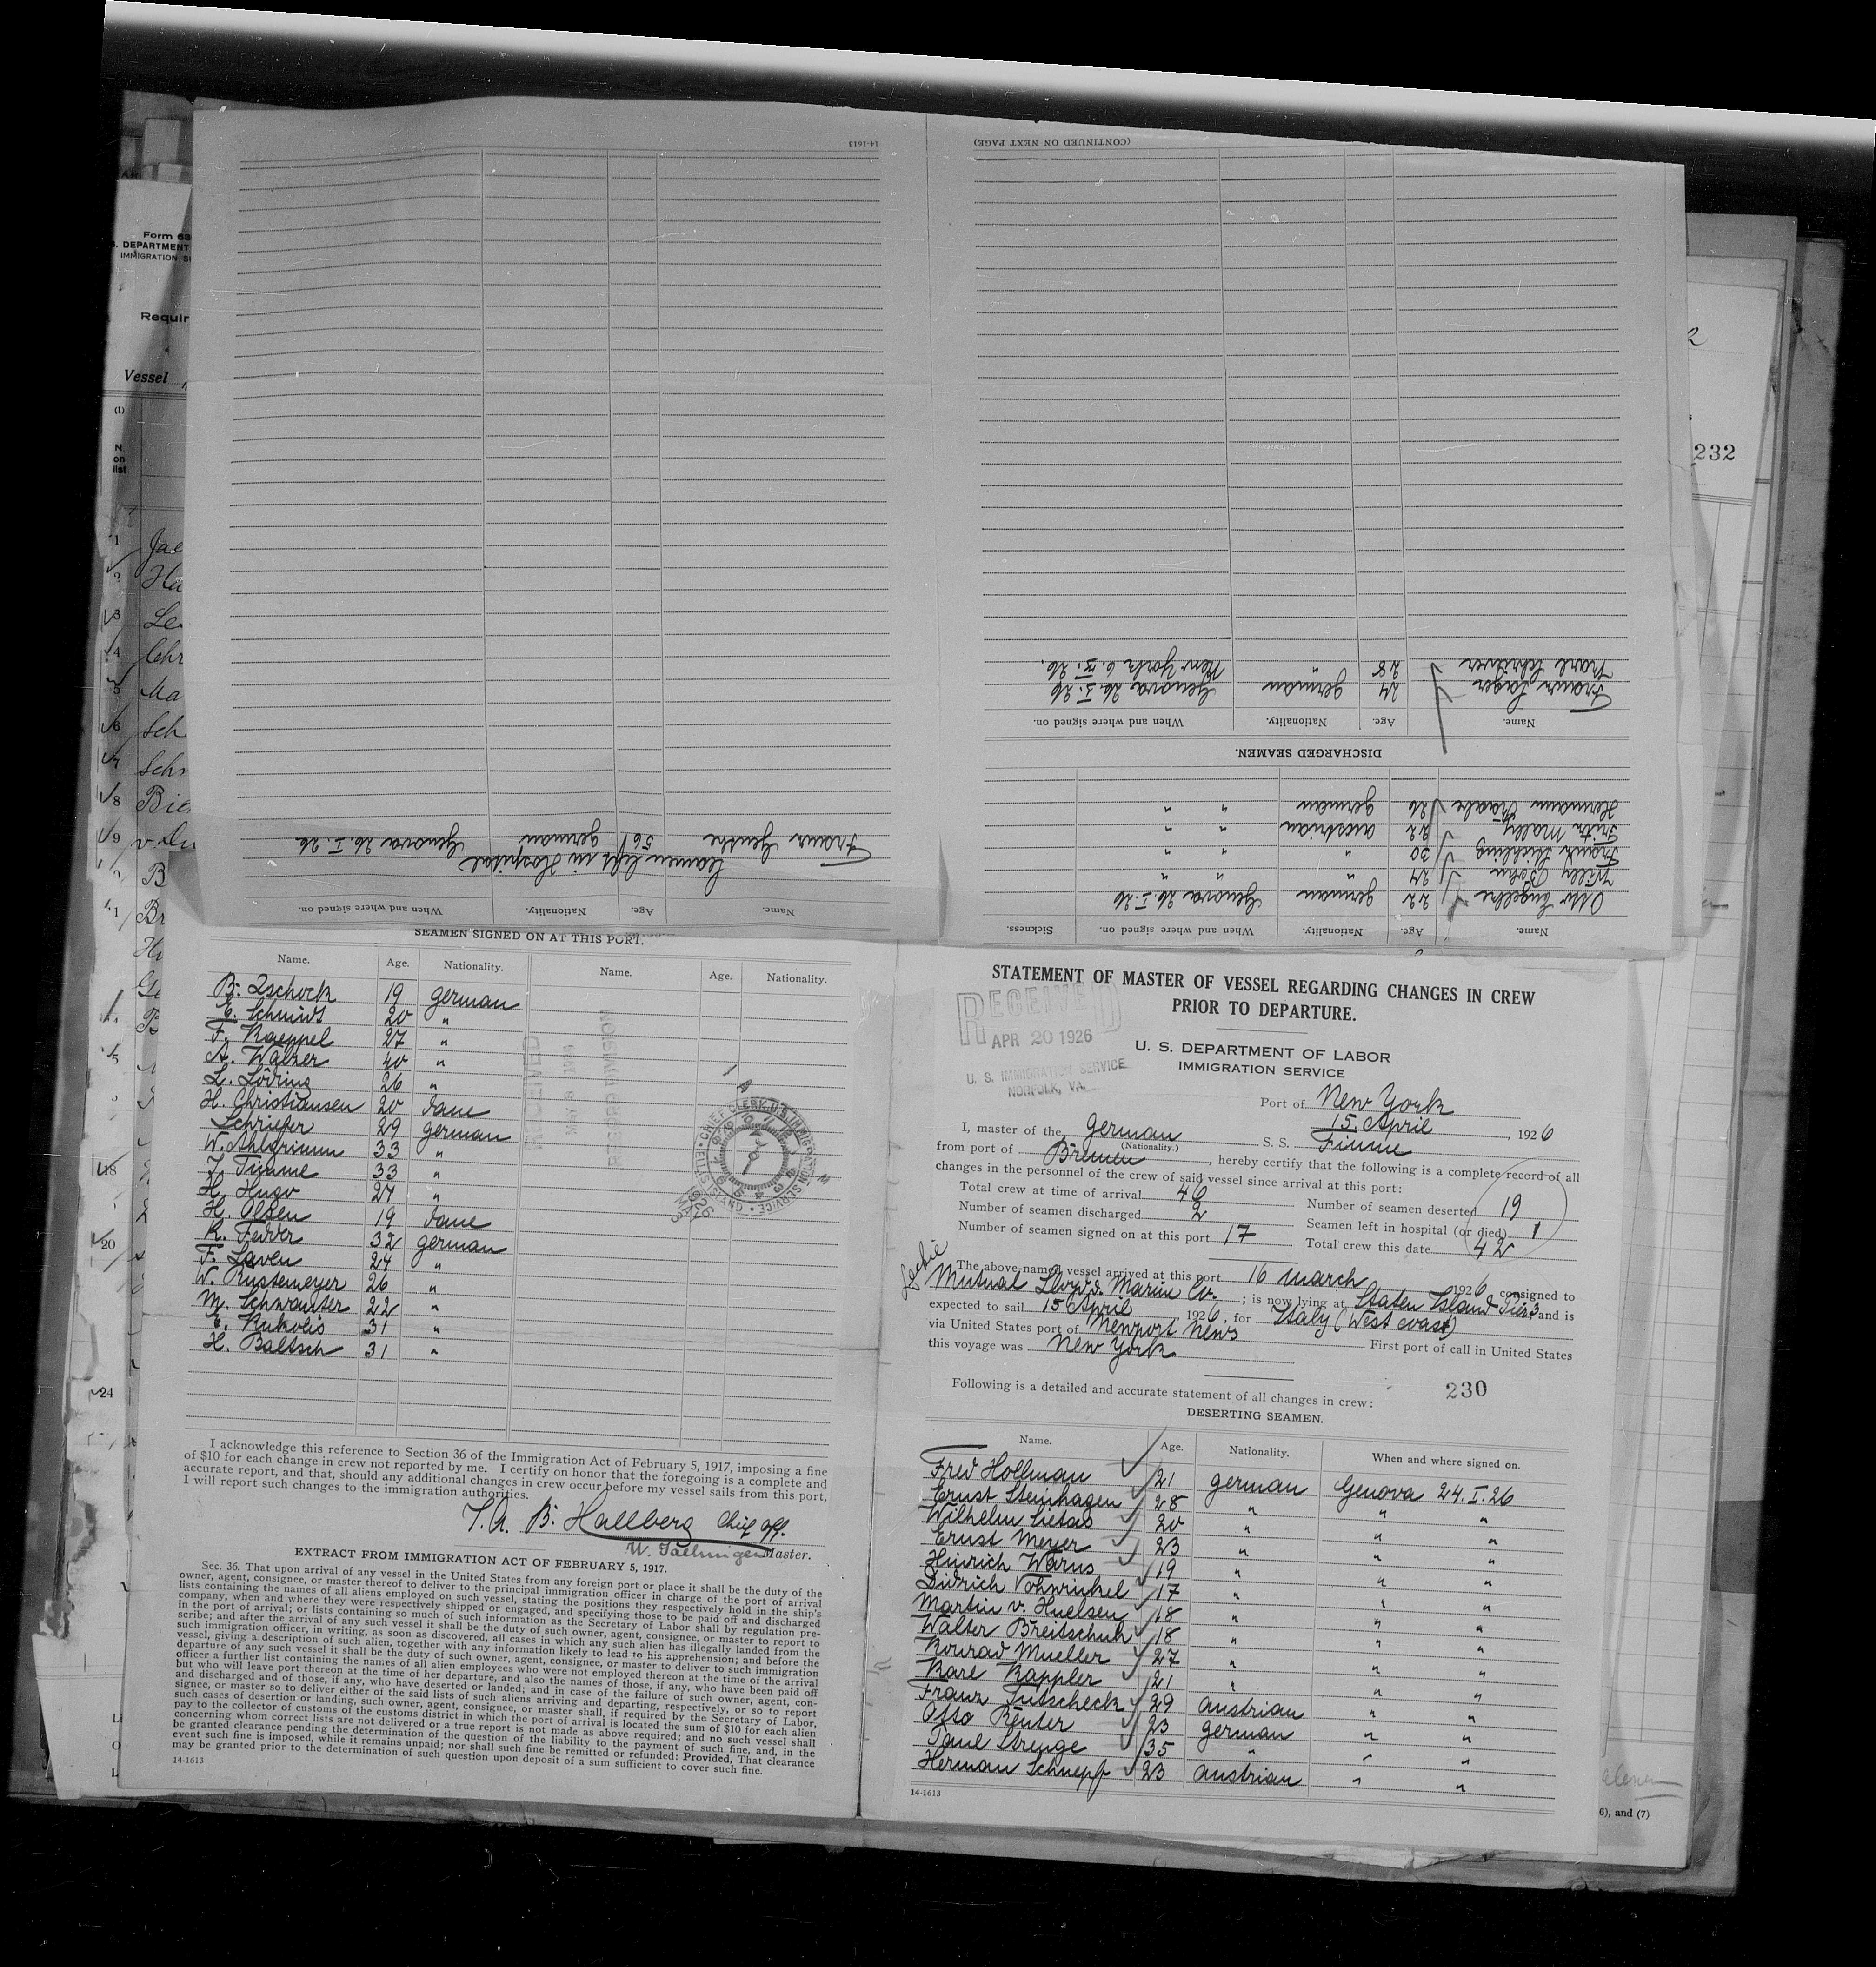 14-1613
(CONTINUED ON NEXT PAGE)
Form
S. DEPARTMENT
IMMIGRATION
Requir
Vessel
232
Name. Age. Nationality. When and where signed on.
Seamen left in Hospital
Franz Genthe 56 german Genova 26.I.26
Name. Age. Nationality. When and where signed on. Sickness.
Otto Engelke 22 german Genova 26.I.26
Willy Bohn 24 " " "
Frank 30 " " "
Fritz Mally 22 austrian " "
Hermann Raabe 26 german " "
DISCHARGED SEAMEN.
Name. Age. Nationality. When and where signed on.
Franz Jager 24 german Genova 26.I.26
Karl Schriever 28 " New York 6.3.26.
SEAMEN SIGNED ON AT THIS PORT.
Name. Age. Nationality. Name. Age. Nationality.
B. Zschock 19 german
E. Schmidt 20 "
F. Kaeppel 27 "
A. Walzer 40 "
L. Löring 26 "
H. Christiansen 20 dane
Schriefer 29 german
W. Ahlgrimm 33 "
J. Timme 33 "
H. Hugo 27 "
H. Olsen 19 dane
R. Fedder 32 german
F. Laven 24 "
W. Rustemeyer 26 "
M. Schwanter 22 "
E. Kukolis 31 "
H. Baltsch 31 "
I acknowledge this reference to Section 36 of the Immigration Act of February 5, 1917, imposing a fine
of $10 for each change in crew not reported by me. I certify on honor that the foregoing is a complete and
accurate report, and that, should any additional changes in crew occur before my vessel sails from this port,
I will report such changes to the immigration authorities.
B. Hallberg Chief off.
Master.
EXTRACT FROM IMMIGRATION ACT OF FEBRUARY 5, 1917.
Sec. 36. That upon arrival of any vessel in the United States from any foreign port or place it shall be the duty of the
owner, agent, consignee, or master thereof to deliver to the principal immigration officer in charge of the port of arrival
lists containing the names of all aliens employed on such vessel, stating the positions they respectively hold in the ship's
company, when and where they were respectively shipped or engaged, and specifying those to be paid off and discharged
in the port of arrival; or lists containing so much of such information as the Secretary of Labor shall by regulation pre-
scribe; and after the arrival of any such vessel it shall be the duty of such owner, agent, consignee, or master to report to
such immigration officer, in writing, as soon as discovered, all cases in which any such alien has illegally landed from the
vessel, giving a description of such alien, together with any information likely to lead to his apprehension; and before the
departure of any such vessel it shall be the duty of such owner, agent, consignee, or master to deliver to such immigration
officer a further list containing the names of all alien employees who were not employed thereon at the time of the arrival
but who will leave port thereon at the time of her departure, and also the names of those, if any, who have been paid off
and discharged and of those, if any, who have deserted or landed; and in case of the failure of such owner, agent, con-
signee, or master so to deliver either of the said lists of such aliens arriving and departing, respectively, or so to report
such cases of desertion or landing, such owner, agent, consignee, or master shall, if required by the Secretary of Labor,
pay to the collector of customs of the customs district in which the port of arrival is located the sum of $10 for each alien
concerning whom correct lists are not delivered or a true report is not made as above required; and no such vessel shall
be granted clearance pending the determination of the question of the liability to the payment of such fine, and, in the
event such fine is imposed, while it remains unpaid; nor shall such fine be remitted or refunded: Provided, That clearance
may be granted prior to the determination of such question upon deposit of a sum sufficient to cover such fine.
14-1613
STATEMENT OF MASTER OF VESSEL REGARDING CHANGES IN CREW
PRIOR TO DEPARTURE.
RECEIVED
APR 20 1926
U. S. IMMIGRATION SERVICE
NORFOLK, VA.
U. S. DEPARTMENT OF LABOR
IMMIGRATION SERVICE
Port of New York
15. April, 1926
I, master of the german S. S. Fiume
(Nationality.)
from port of Bremen, hereby certify that the following is a complete record of all
changes in the personnel of the crew of said vessel since arrival at this port:
Total crew at time of arrival 46 Number of seamen deserted 19
Number of seamen discharged 2 Seamen left in hospital (or died) 1
Number of seamen signed on at this port 17 Total crew this date 42
The above-named vessel arrived at this port 16 March 1926 consigned to
Mutual Marine Co.; is now lying at Staten Island Pier 3, and is
expected to sail 15 April, 1926, for Italy (West coast)
via United States port of Newport News First port of call in United States
this voyage was New York
230
Following is a detailed and accurate statement of all changes in crew:
DESERTING SEAMEN.
Name. Age. Nationality. When and where signed on.
Fred Hollman 21 german Genova 24.I.26
Ernst Steinhagen 28 " " "
Wilhelm Sietas 20 " " "
Ernst Meyer 23 " " "
Hinrich Warns 19 " " "
Didrich Vohwinkel 17 " " "
Martin v. Huelsen 18 " " "
Walter Breitschuh 18 " " "
Konrad Mueller 27 " " "
Karl Kappler 21 " " "
Franz Tutscheck 29 austrian " "
Otto Reuter 23 german " "
Paul Strenge 35 " " "
Herman Schnepf 23 austrian " "
14-1613
6), and (7)